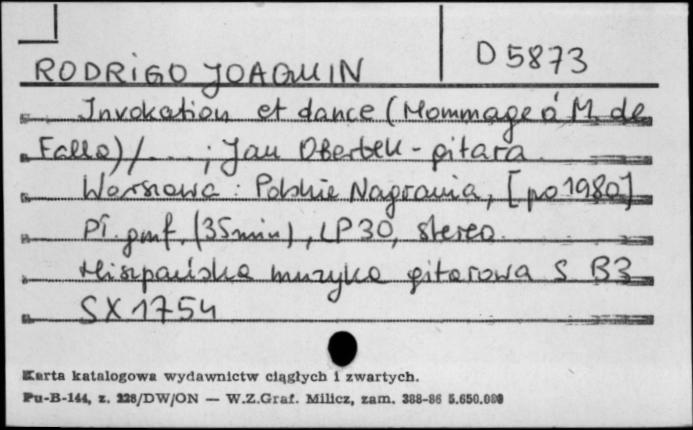 D 5873
RODRIGO JOAQUIN
Invokation et dance (Hommage á M. de
Falla) / ... ; Jan Oberbek - gitara
Warszawa : Polskie Nagrania, [po 1980]
Pł. gmf. (35 min), LP 30, stereo
Hiszpańska muzyka gitarowa S B3
SX 1754
Karta katalogowa wydawnictw ciągłych i zwartych.
Pu-B-144, z. 228/DW/ON — W.Z.Graf. Milicz, zam. 388-86 5.650.000